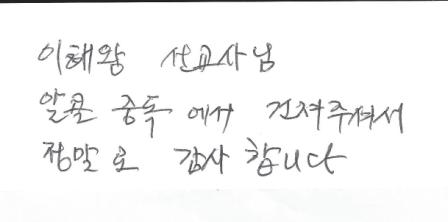 이해왕 선교사님
알콜 중독 에서 건져주셔서
정말로 감사 합니다